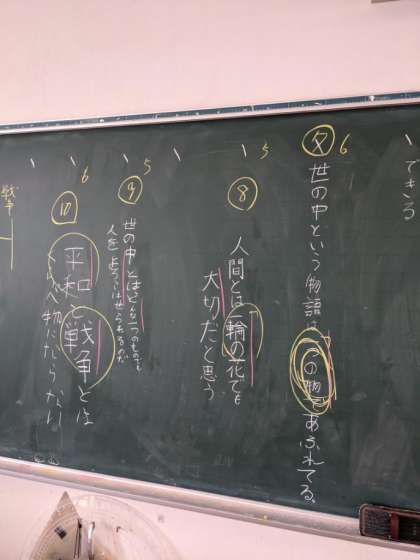 できる
6
世の中という物語は一つの物であふれてる。
5
⑧
人間とは一輪の花でも
大切だと思う
5
⑨
世の中とはどんな一つのものでも
人をよろこばせられるのだ
6
⑩
平和と戦争とは
くらべ物にならない
戦争